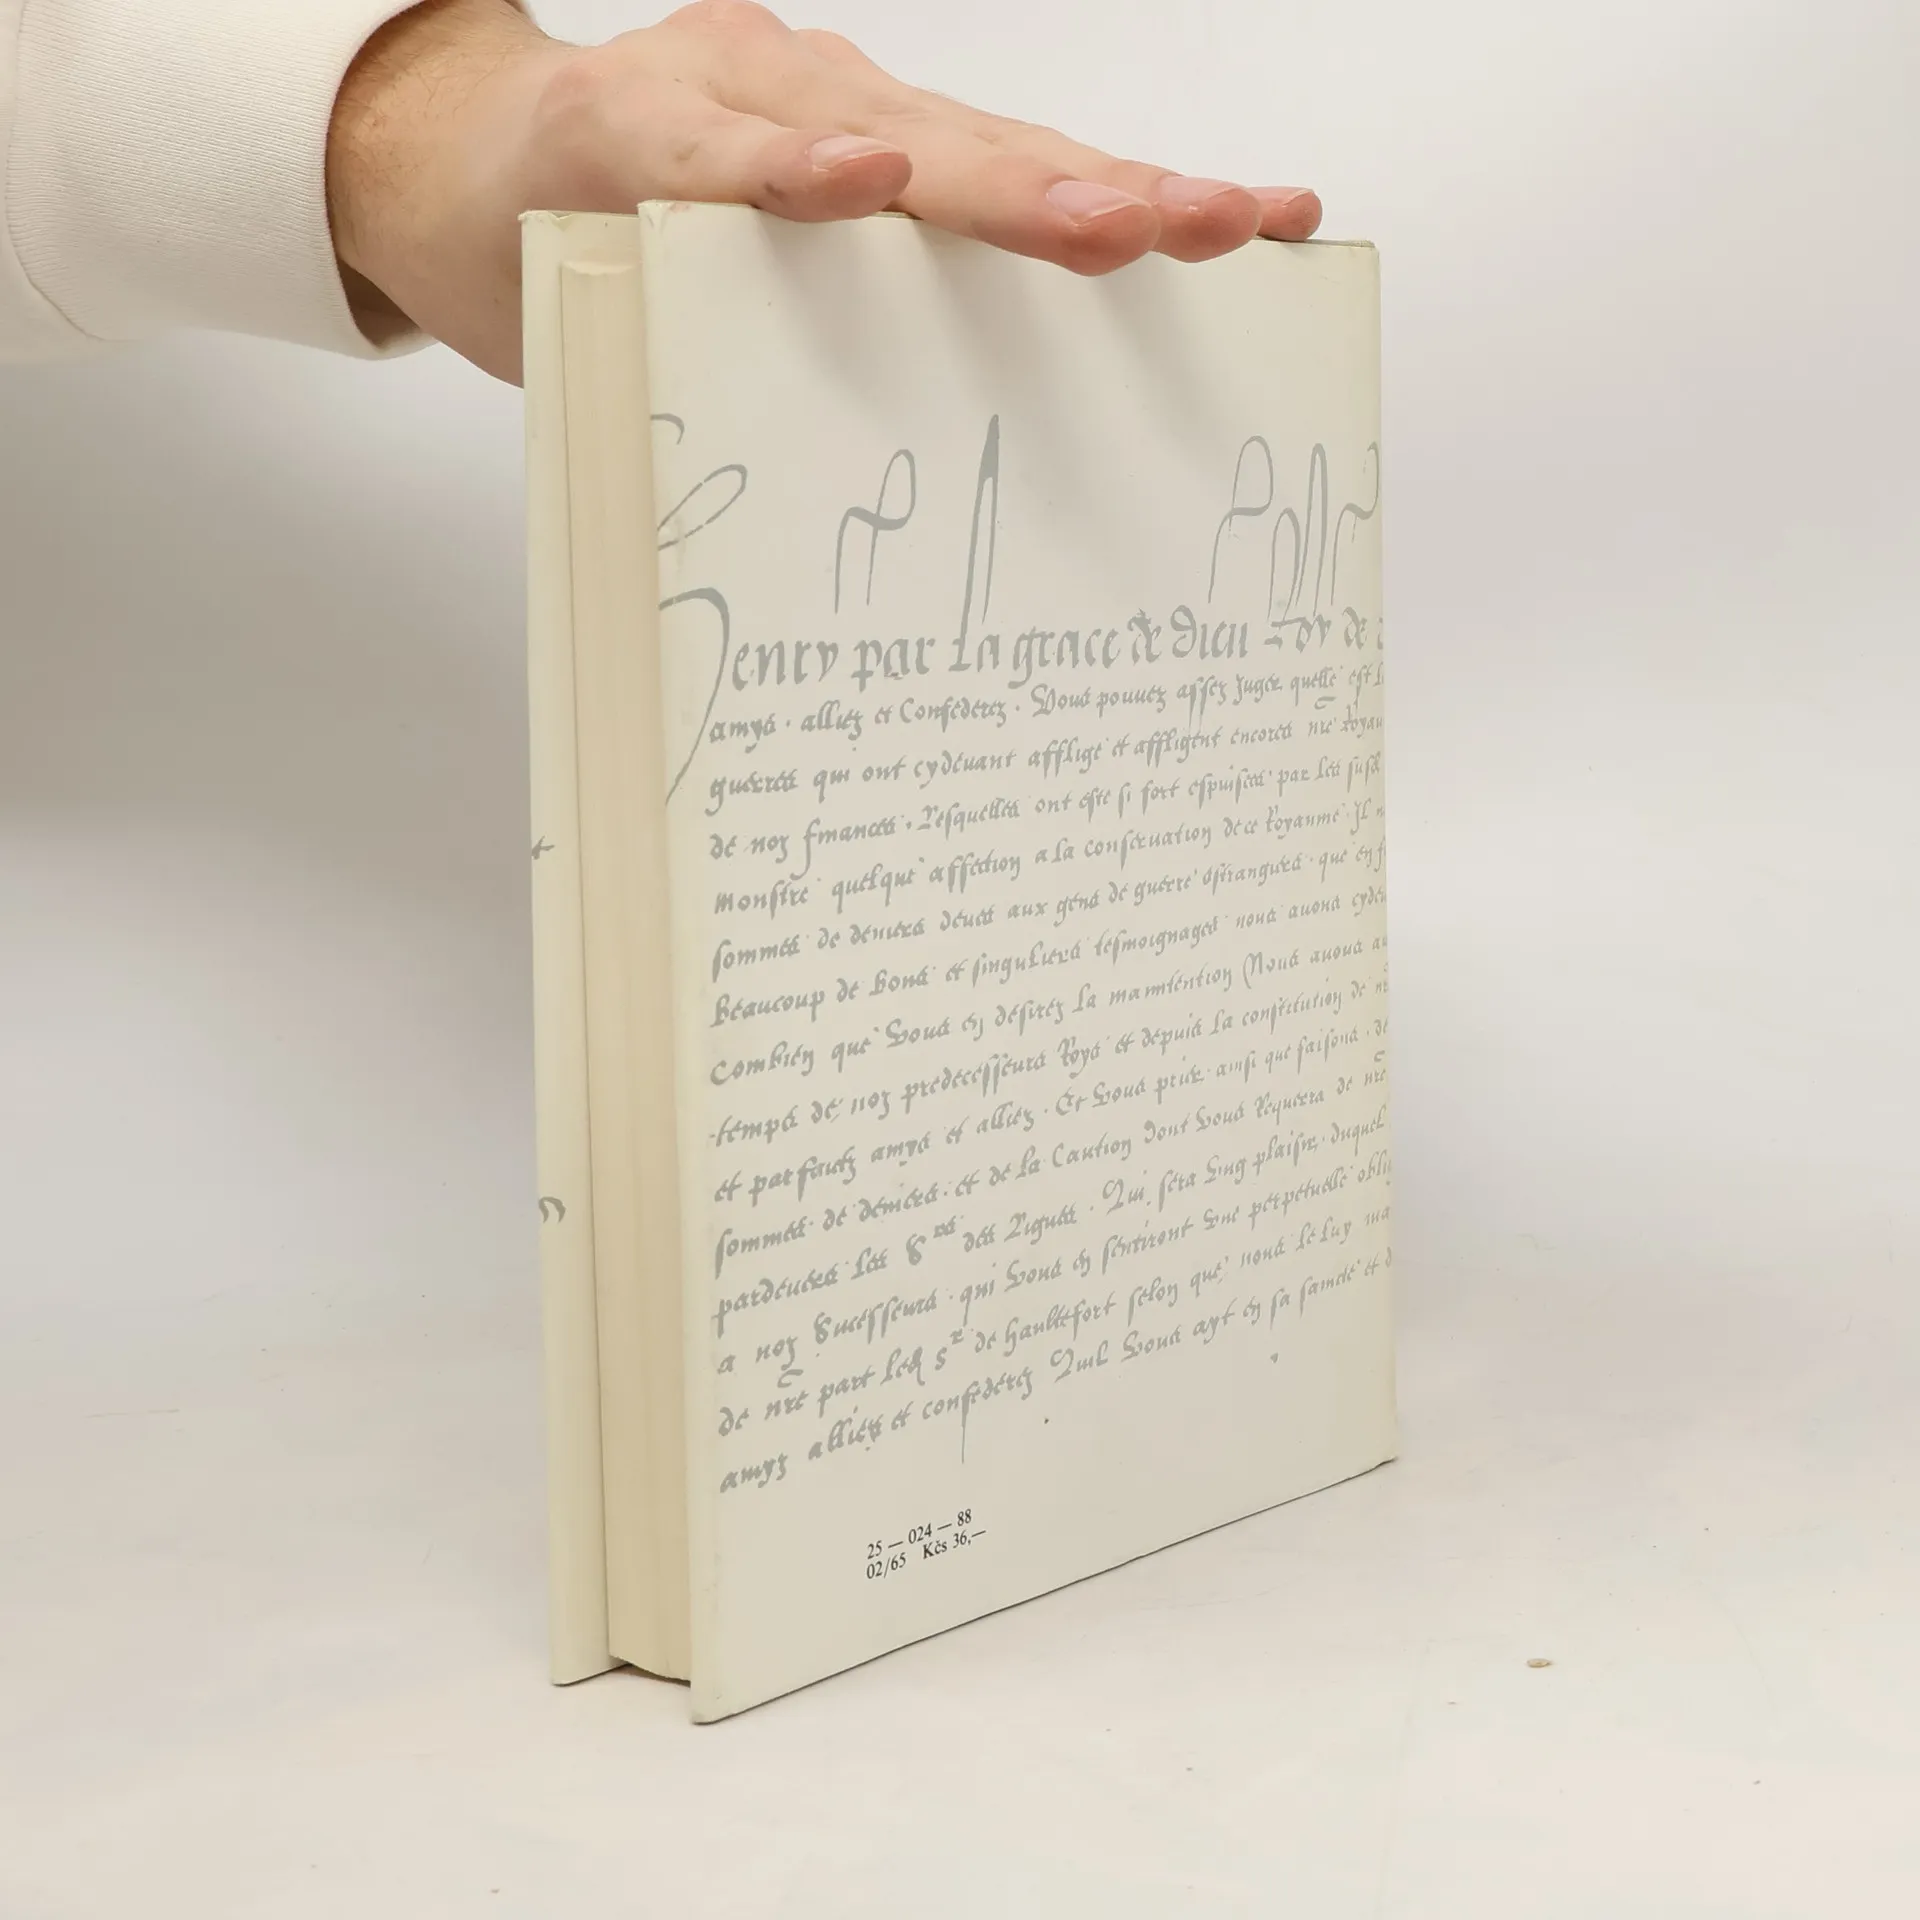 Henry par La grace de dieu Roy de
amys · alliez et Confederez · Vous pouuez assez Juger quelle est
guerres qui ont cydeuant afflige et affligent encores nre Royau
de noz finances · Lesquelles ont este si fort espuisees par les
monstre quelque affection a la conseruation de ce Royaume · Il
sommes de deniers deues aux gens de guerre estrangers · que en
Beaucoup de bons et singuliers tesmoignages nous auons cyde
Combien que Vous en desirez La manutention Nous auons
temps de noz predecesseurs Roys et depuis La constitution de
et parfaictz amys et alliez · Et Vous prier ainsi que faisons · de
sommes de deniers · et de La Caution dont Vous Requerra de nre
pardeuers les Srs des Ligues · Qui sera Vng plaisir · duquel
a noz Successeurs · qui Vous en sentiront Vne perpetuelle obli
de nre part led Sr de Haultefort selon que nous Le Luy
amys alliez et confederez Quil Vous ayt en sa saincte et d
25 — 024 — 88
02/65 Kčs 36,—